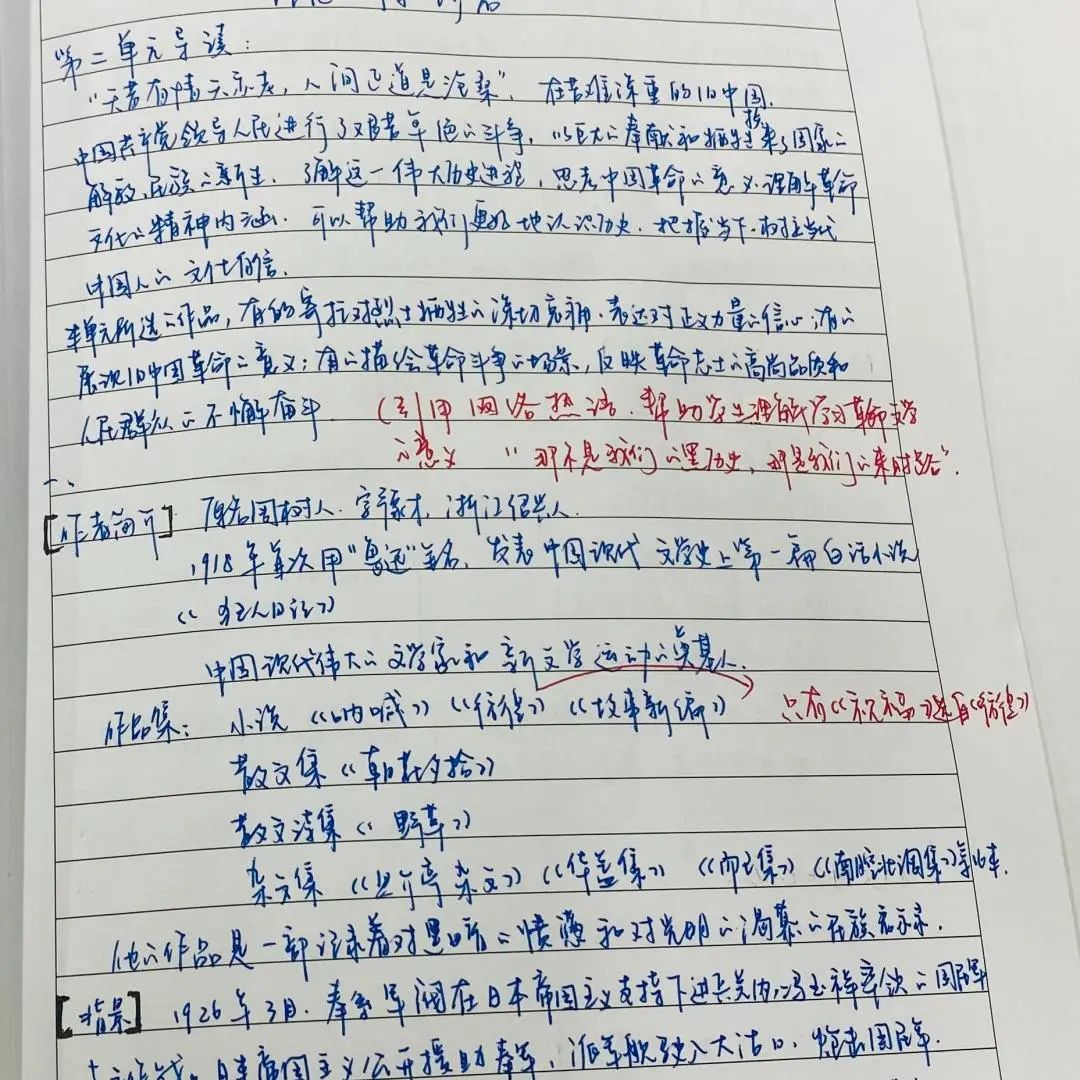 第二单元导读：
"天若有情天亦老，人间正道是沧桑"，在苦难深重的旧中国，
中国共产党领导人民进行了艰苦卓绝的斗争，以巨大的奉献和牺牲换来了国家的
解放，民族的新生．了解这一伟大历史进程，思考中国革命的意义，理解革命
文化的精神内涵．可以帮助我们更好地认识历史．把握当下．树立当代
中国人的文化自信．
本单元所选的作品，有的寄托对烈士牺牲的深切哀痛．表达对正义力量的信心；有的
展现旧中国革命的意义；有的描绘革命斗争的场景，反映革命志士的高尚品质和
人民群众的不懈奋斗
（引用网络热语．帮助学生理解学习革命文学
的意义 "那不是我们的黑历史，那是我们的来时路"．
一、
[作者简介] 原名周树人．字豫才，浙江绍兴人．
1918年首次用"鲁迅"笔名，发表中国现代文学史上第一篇白话小说
《狂人日记》
中国现代伟大的文学家和新文学运动的奠基人．
作品集：小说《呐喊》《彷徨》《故事新编》 只有《祝福》选自《彷徨》
散文集《朝花夕拾》
散文诗集《野草》
杂文集《且介亭杂文》《华盖集》《而已集》《南腔北调集》等16本．
他的作品是一部记录着对黑暗的愤懑和对光明的渴慕的民族启示录．
[背景] 1926年3月．奉系军阀在日本帝国主义支持下进兵关内，冯玉祥率领的国民军
日本帝国主义公开援助奉军，派军舰驶入大沽口，炮击国民军．